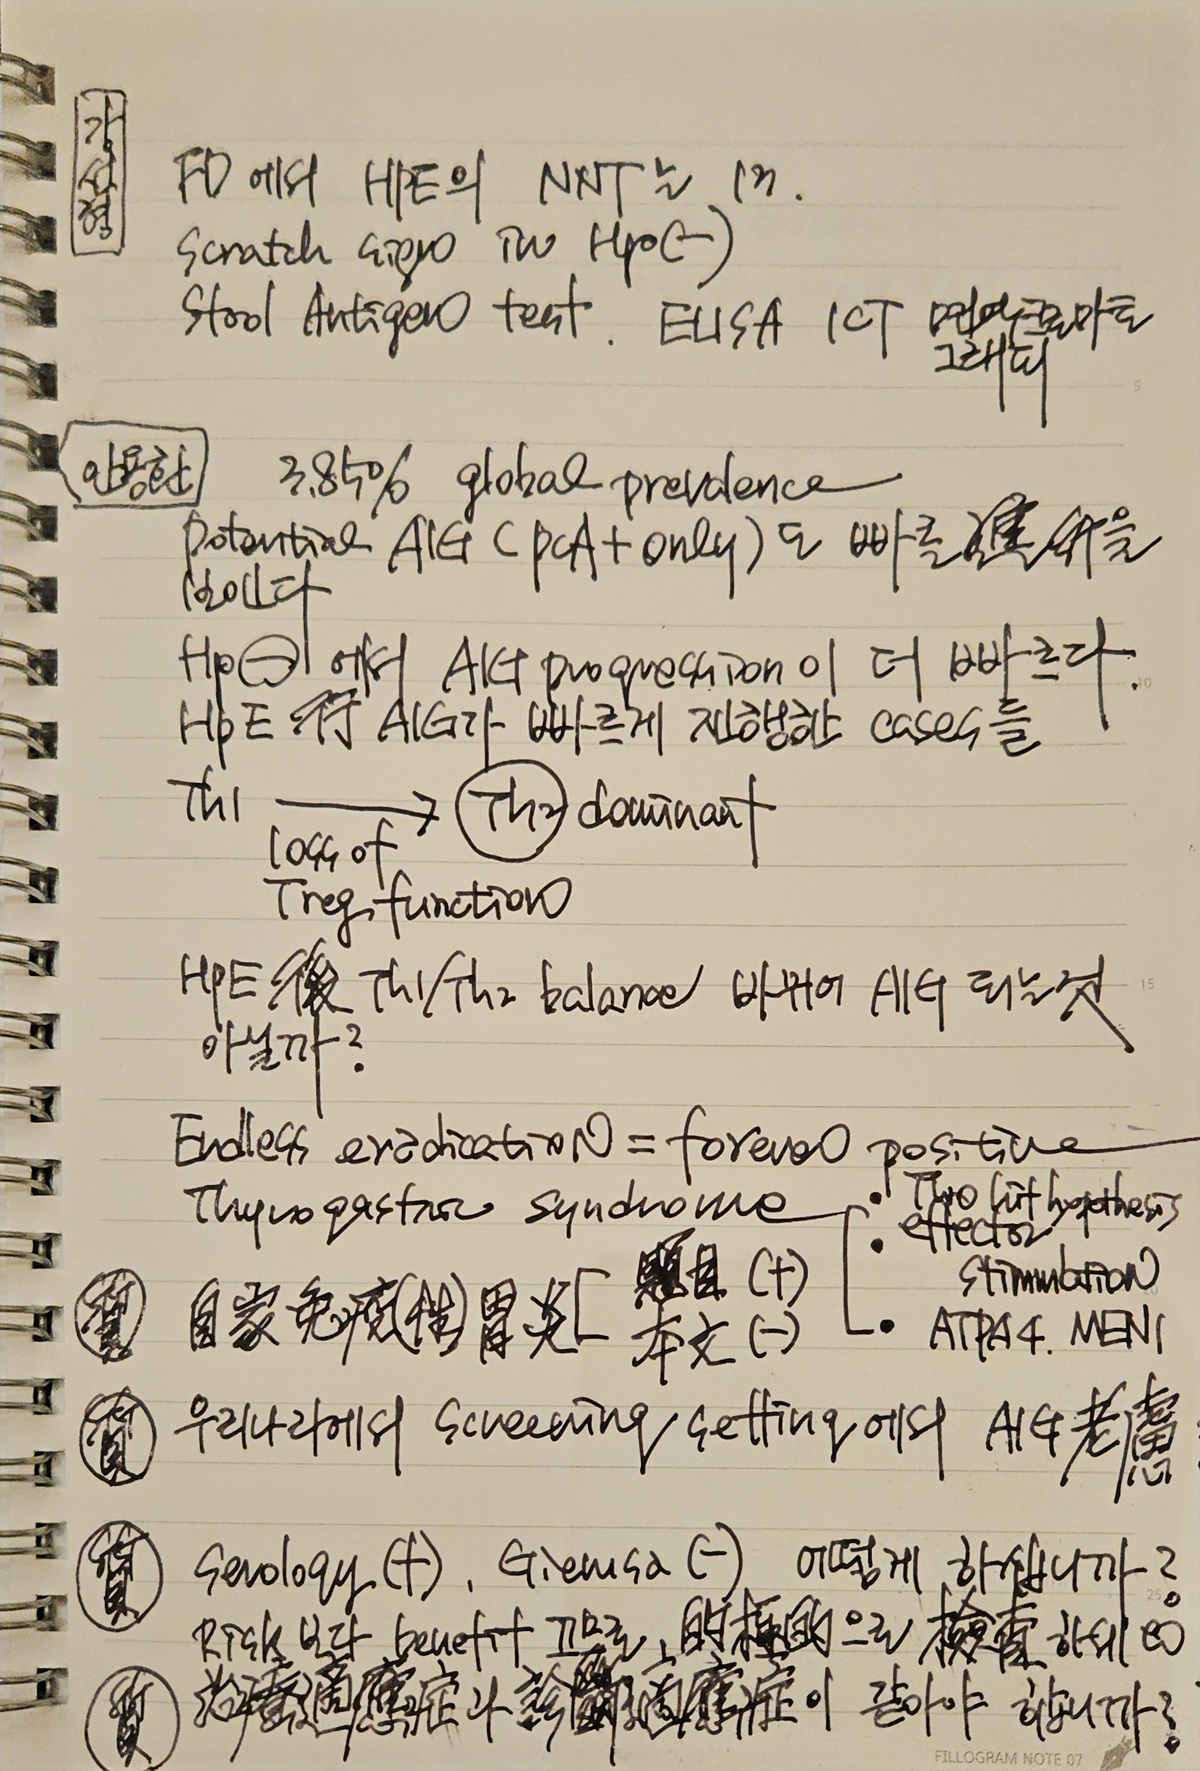 강석형
FD에서 HPE의 NNT는 13.
Scratch sign in Hp(-)
Stool Antigen test. ELISA ICT 면역크로마토
그래피
안용한 3.85% global prevalence
potential AIG (PCA+ only)도 빠른 進行을
보인다
Hp⊖에서 AIG progression이 더 빠르다.
HPE 後 AIG가 빠르게 진행한 cases들
Th1 → Th2 dominant
loss of
Treg function
HPE 後 Th1/Th2 balance 바뀌어 AIG 되는것
아닐까?
Endless eradication = forever positive
Thyrogastric syndrome • Two hit hypothesis
• effector
stimulation
• ATPA4. MEN1
質 自家免疫(性)胃炎 題目 (+)
本文 (-)
質 우리나라에서 screening setting에서 AIG 考慮
質 Serology (+), Giemsa (-) 어떻게 하십니까?
Risk보다 benefit 고로, 으로 檢査하세요
質 治療適應症과 診斷適應症이 같아야 합니까?
FILLOGRAM NOTE 07